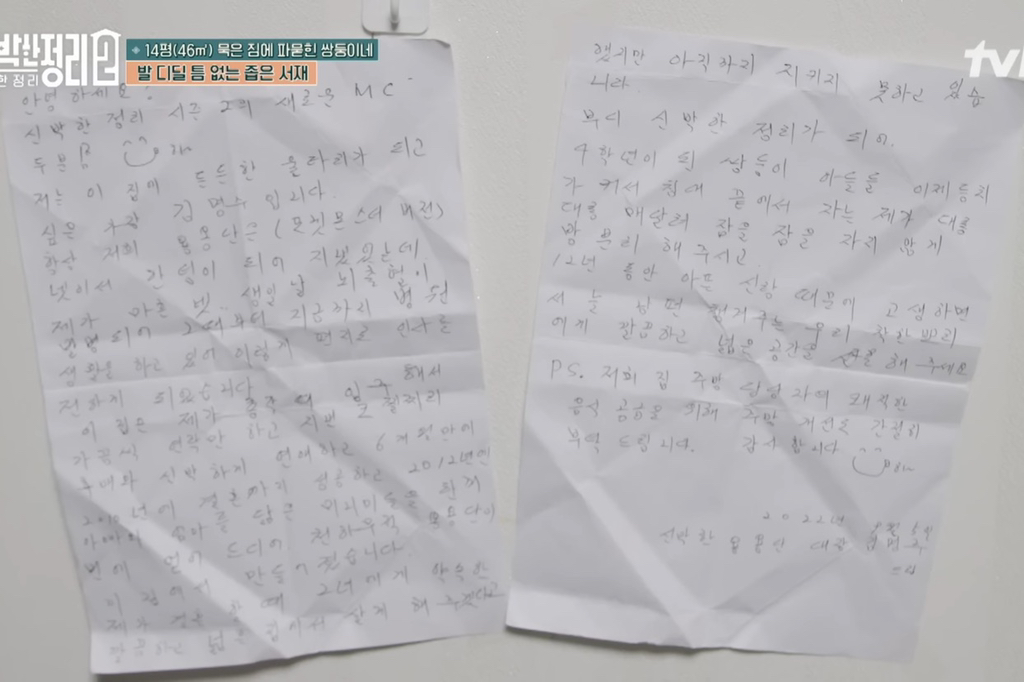 박한정리2
한 정리
14평(46㎡) 묵은 짐에 파묻힌 쌍둥이네
발 디딜 틈 없는 좁은 서재
tvN
안녕하세요!
신박한 정리 시즌 2의 새로운 MC
두분님
저는 이 집에 든든한 울타리가 되고
싶은 가장 김명수 입니다.
항상 저희 용용단은 (포켓몬스터 버전)
넷이서 한 덩이 되어 지냈었는데
제가 마흔 넷 생일날 뇌출혈이
발병되어 그때부터 지금까지 병원
생활을 하고 있어 이렇게 편지로 인사를
전하게 되었습니다
이 집은 제가 총각 때 일 해서
가끔씩 연락만 하고 지낸
후배와 신박하게 연애하고 6개월만에
2010년에 결혼까지 성공하고 2012년엔
아빠와 엄마를 닮은 미미들을 한꺼
번에 얻어 드디어 천하무적 용용단이
이 집에서 만들어 졌습니다.
제가 결혼 할 때 그녀에게 약속한
깔끔하고 넓은 집에서 살게 해 주겠다고
했지만 아직까지 지키지 못하고 있습
니다.
부디 신박한 정리가 되어,
4학년이 된 쌍둥이 아들들 이제 등치
가 커서 침대 끝에서 자는 제가 대롱
대롱 매달려 잠을 자지 않게
방 분리 해 주시고
12년 동안 아픈 신랑 때문에 고생하면
서 늘 챙겨주는 우리 착한
에게 깔끔하고 넓은 공간을 선물 해 주세요
PS. 저희 집 주방 담당자의 쾌적한
음식 공급을 위해 주방 개선도 간절히
부탁 드립니다. 감사 합니다
2022년
신박한 용용단 대장 김명수
드림